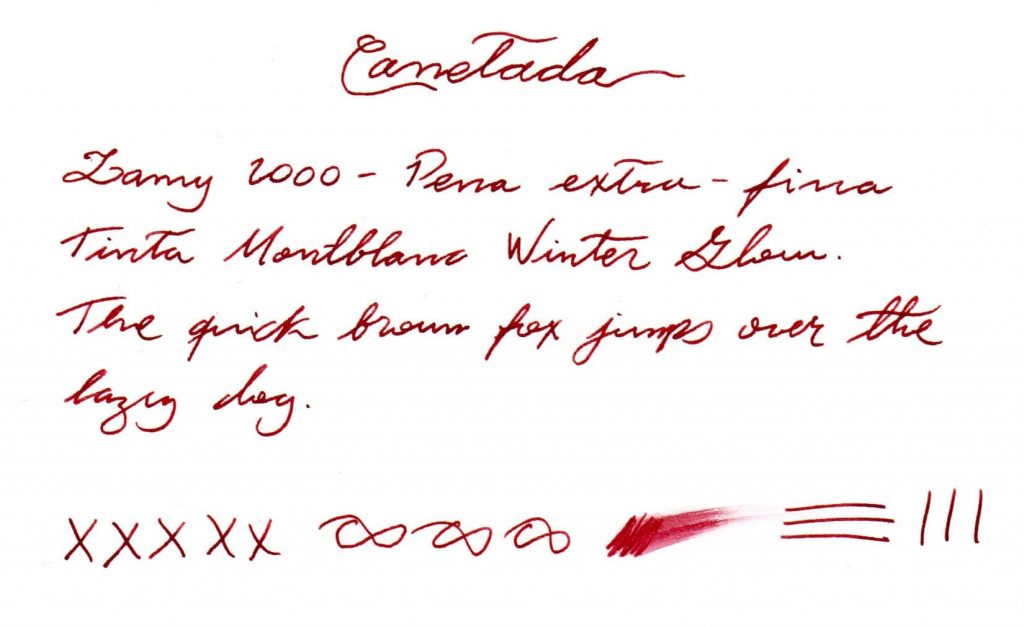 Canetada
Lamy 2000 - Pena extra-fina
Tinta Montblanc Winter Glow.
The quick brown fox jumps over the
lazy dog.
XXXXX